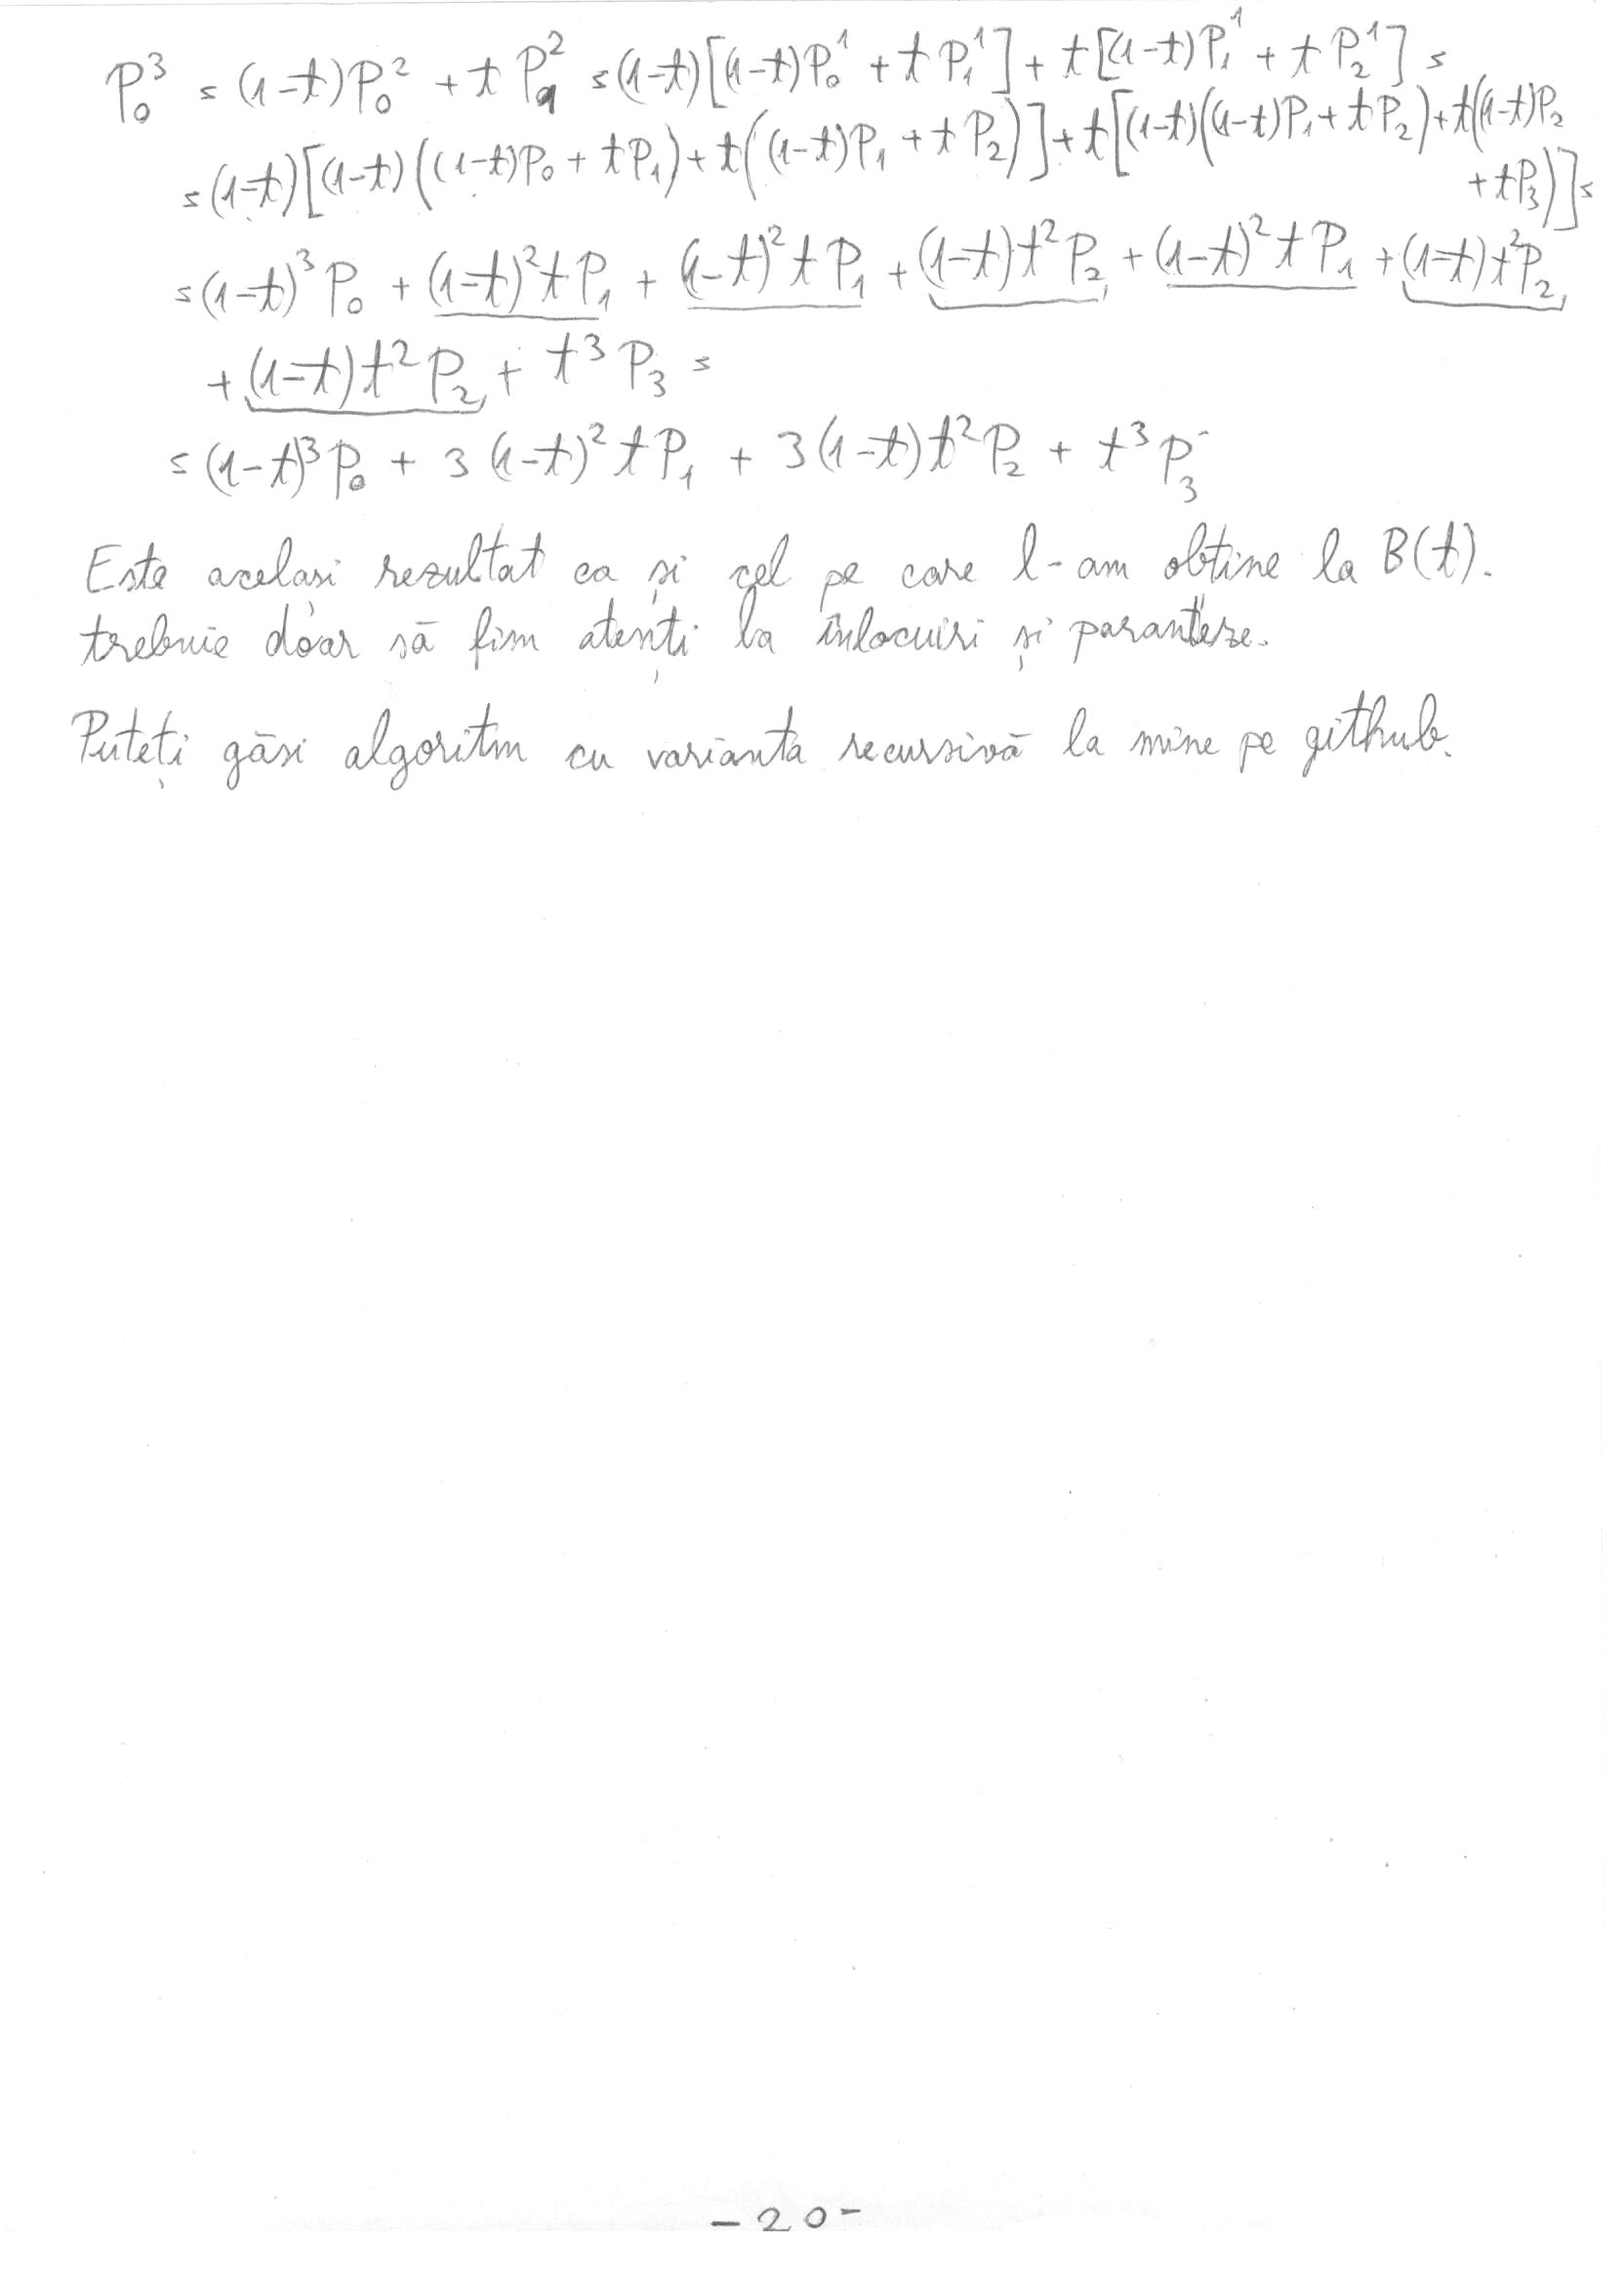 P₀³ = (1-t)P₀² + t P₁² = (1-t)[(1-t)P₀¹ + t P₁¹] + t[(1-t)P₁¹ + t P₂¹] =
= (1-t)[(1-t)((1-t)P₀ + tP₁) + t((1-t)P₁ + tP₂)] + t[(1-t)((1-t)P₁ + tP₂) + t((1-t)P₂
+ tP₃)] =
= (1-t)³P₀ + (1-t)²tP₁ + (1-t)²tP₁ + (1-t)t²P₂ + (1-t)²tP₁ + (1-t)t²P₂
+ (1-t)t²P₂ + t³P₃ =
= (1-t)³P₀ + 3(1-t)²tP₁ + 3(1-t)t²P₂ + t³P₃
Este acelasi rezultat ca și cel pe care l-am obtine la B(t).
trebuie doar să fim atenți la înlocuiri și paranteze.
Puteți găsi algoritm cu varianta recursivă la mine pe github.
-20-